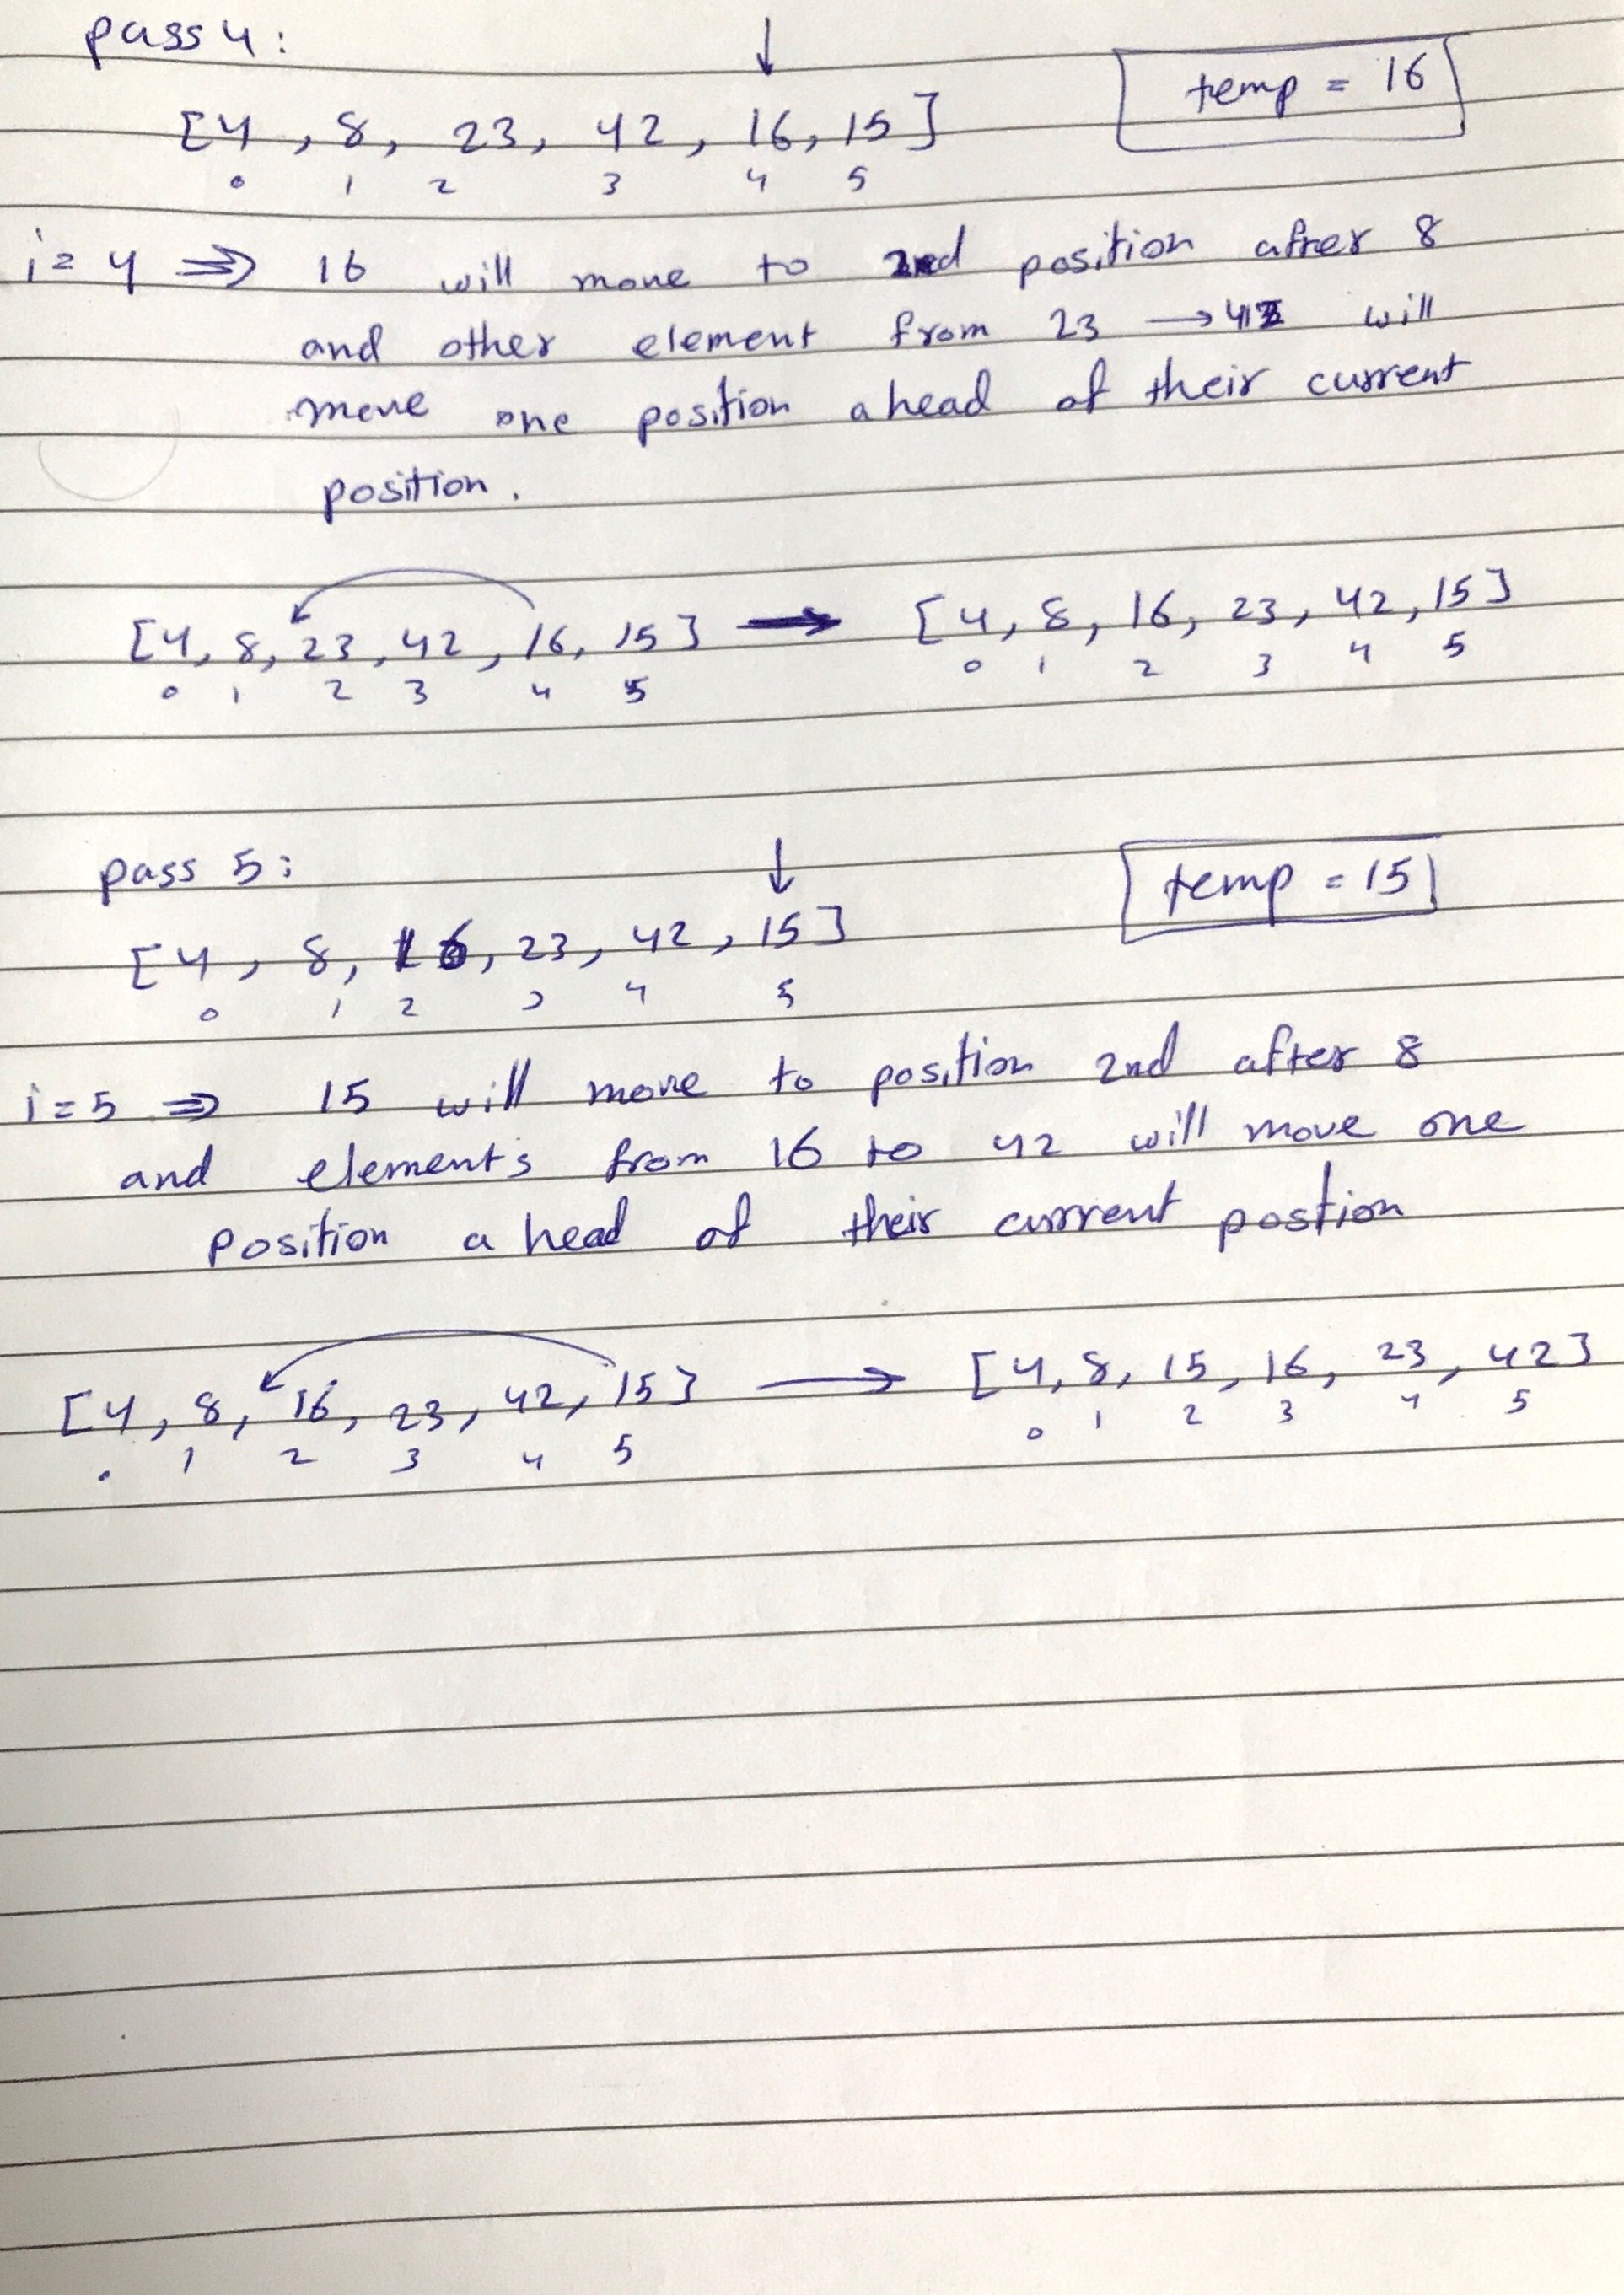 pass 4 :
↓
[4 , 8, 23, 42, 16, 15] temp = 16
0 1 2 3 4 5
i = 4 ⇒ 16 will move to 2nd position after 8
and other element from 23 → 42 will
move one position ahead of their current
position .
[4, 8, 23, 42, 16, 15] → [4, 8, 16, 23, 42, 15]
0 1 2 3 4 5 0 1 2 3 4 5
pass 5 :
↓
[4, 8, 16, 23, 42, 15] temp = 15
0 1 2 3 4 5
i = 5 ⇒ 15 will move to position 2nd after 8
and elements from 16 to 42 will move one
position ahead of their current postion
[4, 8, 16, 23, 42, 15] → [4, 8, 15, 16, 23, 42]
0 1 2 3 4 5 0 1 2 3 4 5